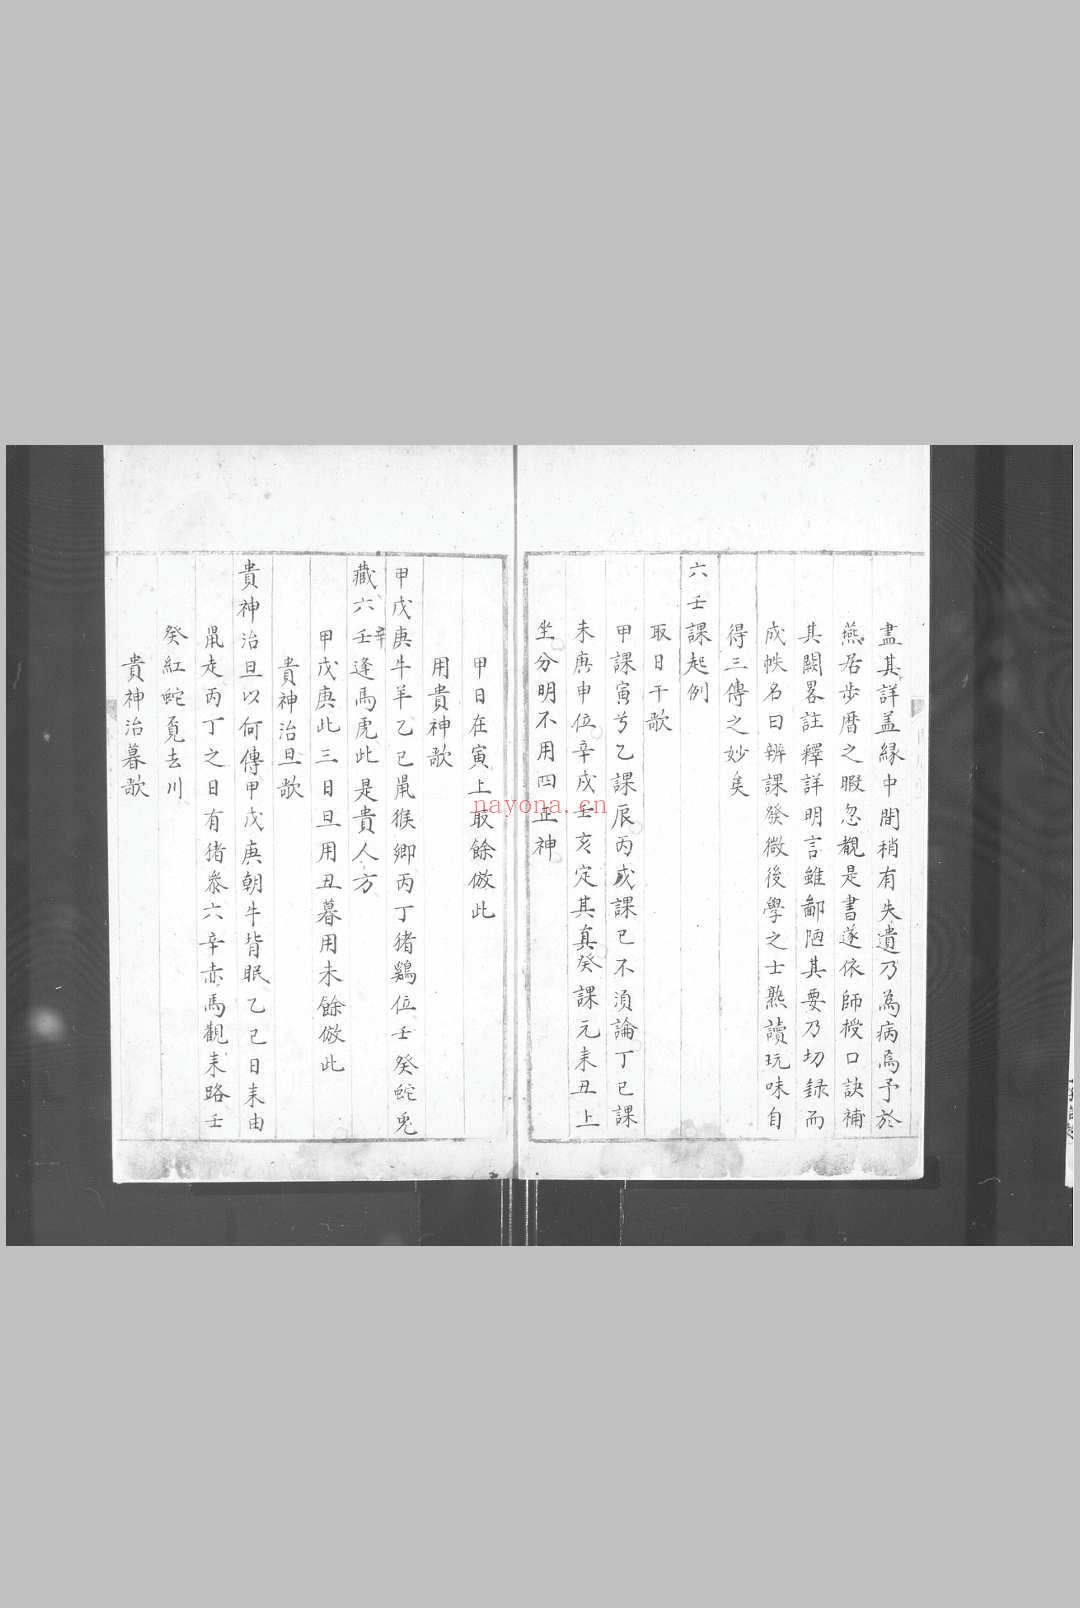 盡其詳盖縁中間稍有失遺乃為病焉予於
燕居步曆之暇忽覩是書遂依師授口訣補
其闕畧註釋詳明言雖鄙陋其要乃切録而
成帙名曰辨課發微後學之士熟讀玩味自
得三傳之妙矣
六壬課起例
取日干歌
甲課寅兮乙課辰丙戊課巳不須論丁巳課
未庚申位辛戌壬亥定其真癸課元来丑上
坐分明不用四正神
甲日在寅上取餘倣此
用貴神歌
甲戊庚牛羊乙己鼠猴鄉丙丁猪鷄位壬癸蛇兎
藏六壬辛逢馬虎此是貴人方
甲戊庚此三日旦用丑暮用未餘倣此
貴神治旦歌
貴神治旦以何傳甲戊庚朝牛背眠乙己日来由
鼠走丙丁之日有猪叅六辛赤馬觀来路壬
癸紅蛇覓去川
貴神治暮歌
nayona.cn